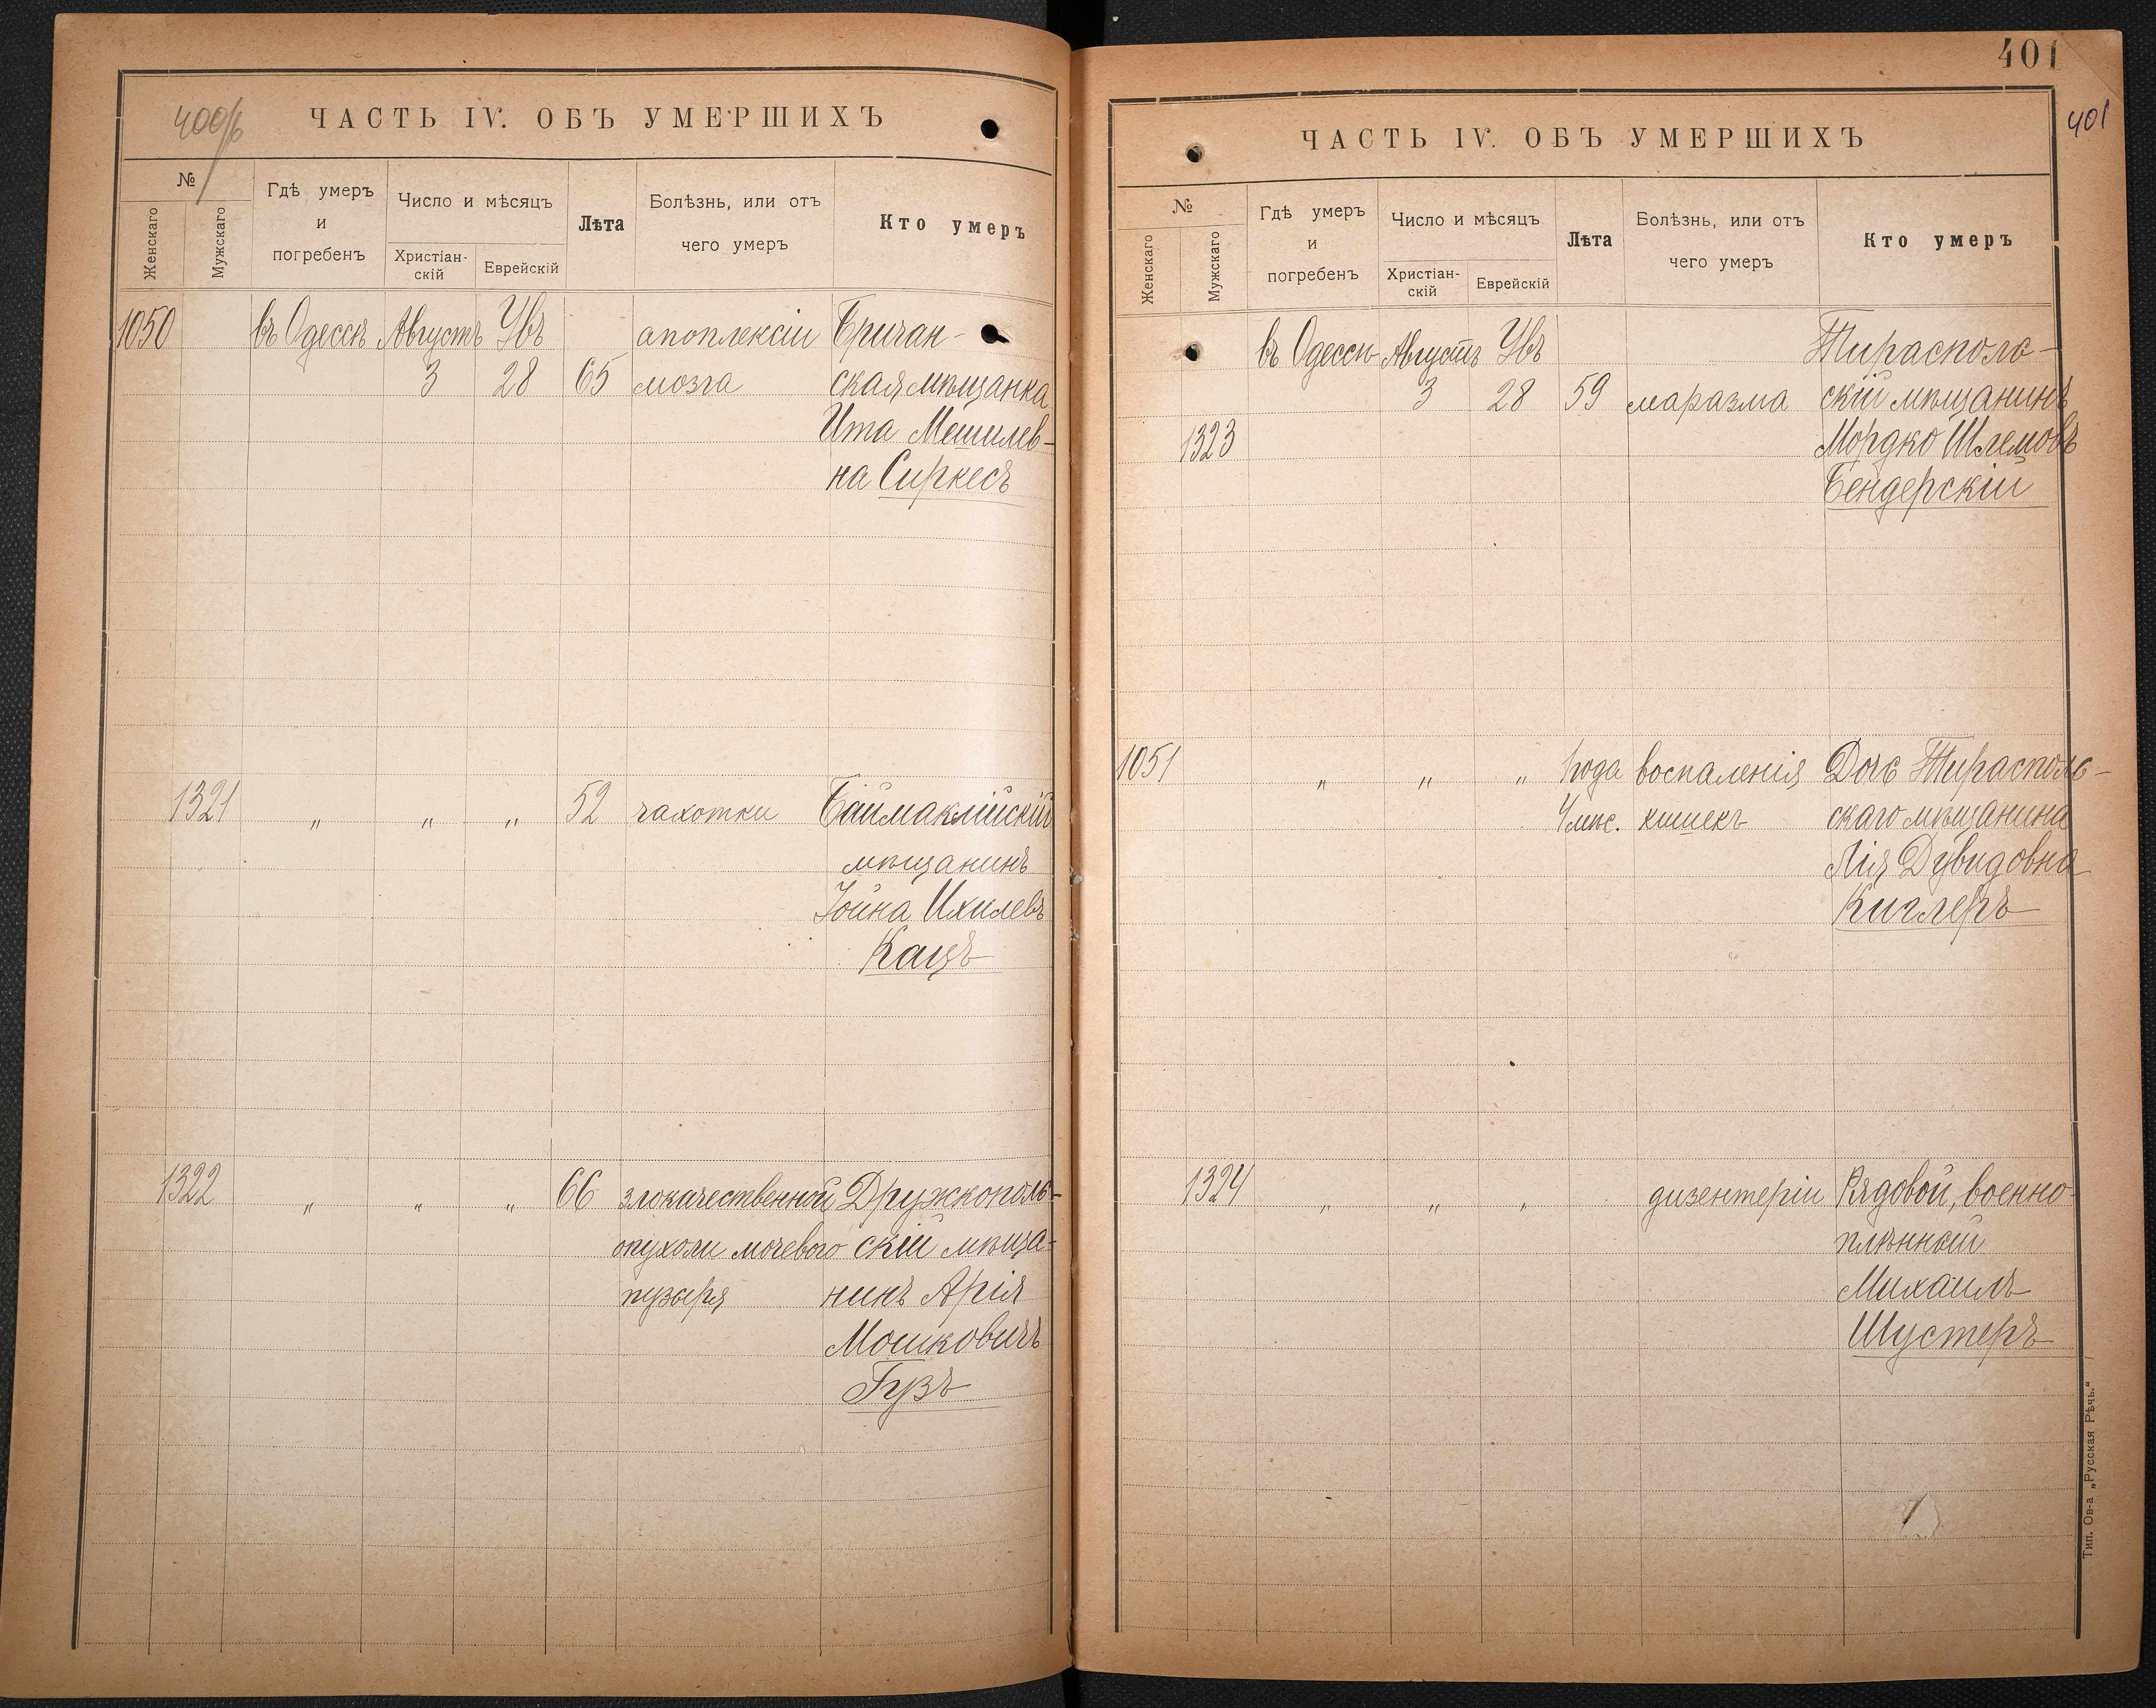 400/б
ЧАСТЬ IV. ОБЪ УМЕРШИХЪ
№
Женскаго
Мужскаго
Гдѣ умеръ
и
погребенъ
Число и мѣсяцъ
Христіан-
скій
Еврейскій
Лѣта
Болѣзнь, или отъ
чего умеръ
Кто умеръ
1050 въ Одессѣ Августъ Увъ апоплексіи Бричан-
3 28 65 мозга ская мѣщанка
Ита Мешилев-
на Сиркесъ
1321 " " " 52 чахотки Баймаклійскій
мѣщанинъ
Іойна Ихилевъ
Кацъ
1322 " " " 66 злокачественной Дружкополь-
опухоли мочевого скій мѣща-
пузыря нинъ Арія
Мошковичъ
Гузъ
401
401
ЧАСТЬ IV. ОБЪ УМЕРШИХЪ
№
Женскаго
Мужскаго
Гдѣ умеръ
и
погребенъ
Число и мѣсяцъ
Христіан-
скій
Еврейскій
Лѣта
Болѣзнь, или отъ
чего умеръ
Кто умеръ
въ Одессѣ Августъ Увъ Тирасполь-
3 28 59 маразма скій мѣщанинъ
1323 Мордко Шлемовъ
Бендерскій
1051 " " " 1 года воспаленія Дочь Тирасполь-
4 мѣс. кишекъ скаго мѣщанина
Лія Дувидовна
Киглеръ
1324 " " " дизентеріи Рядовой, военно-
плѣнный
Михаилъ
Шустеръ
Тип. Ов-а „Русская Рѣчь."